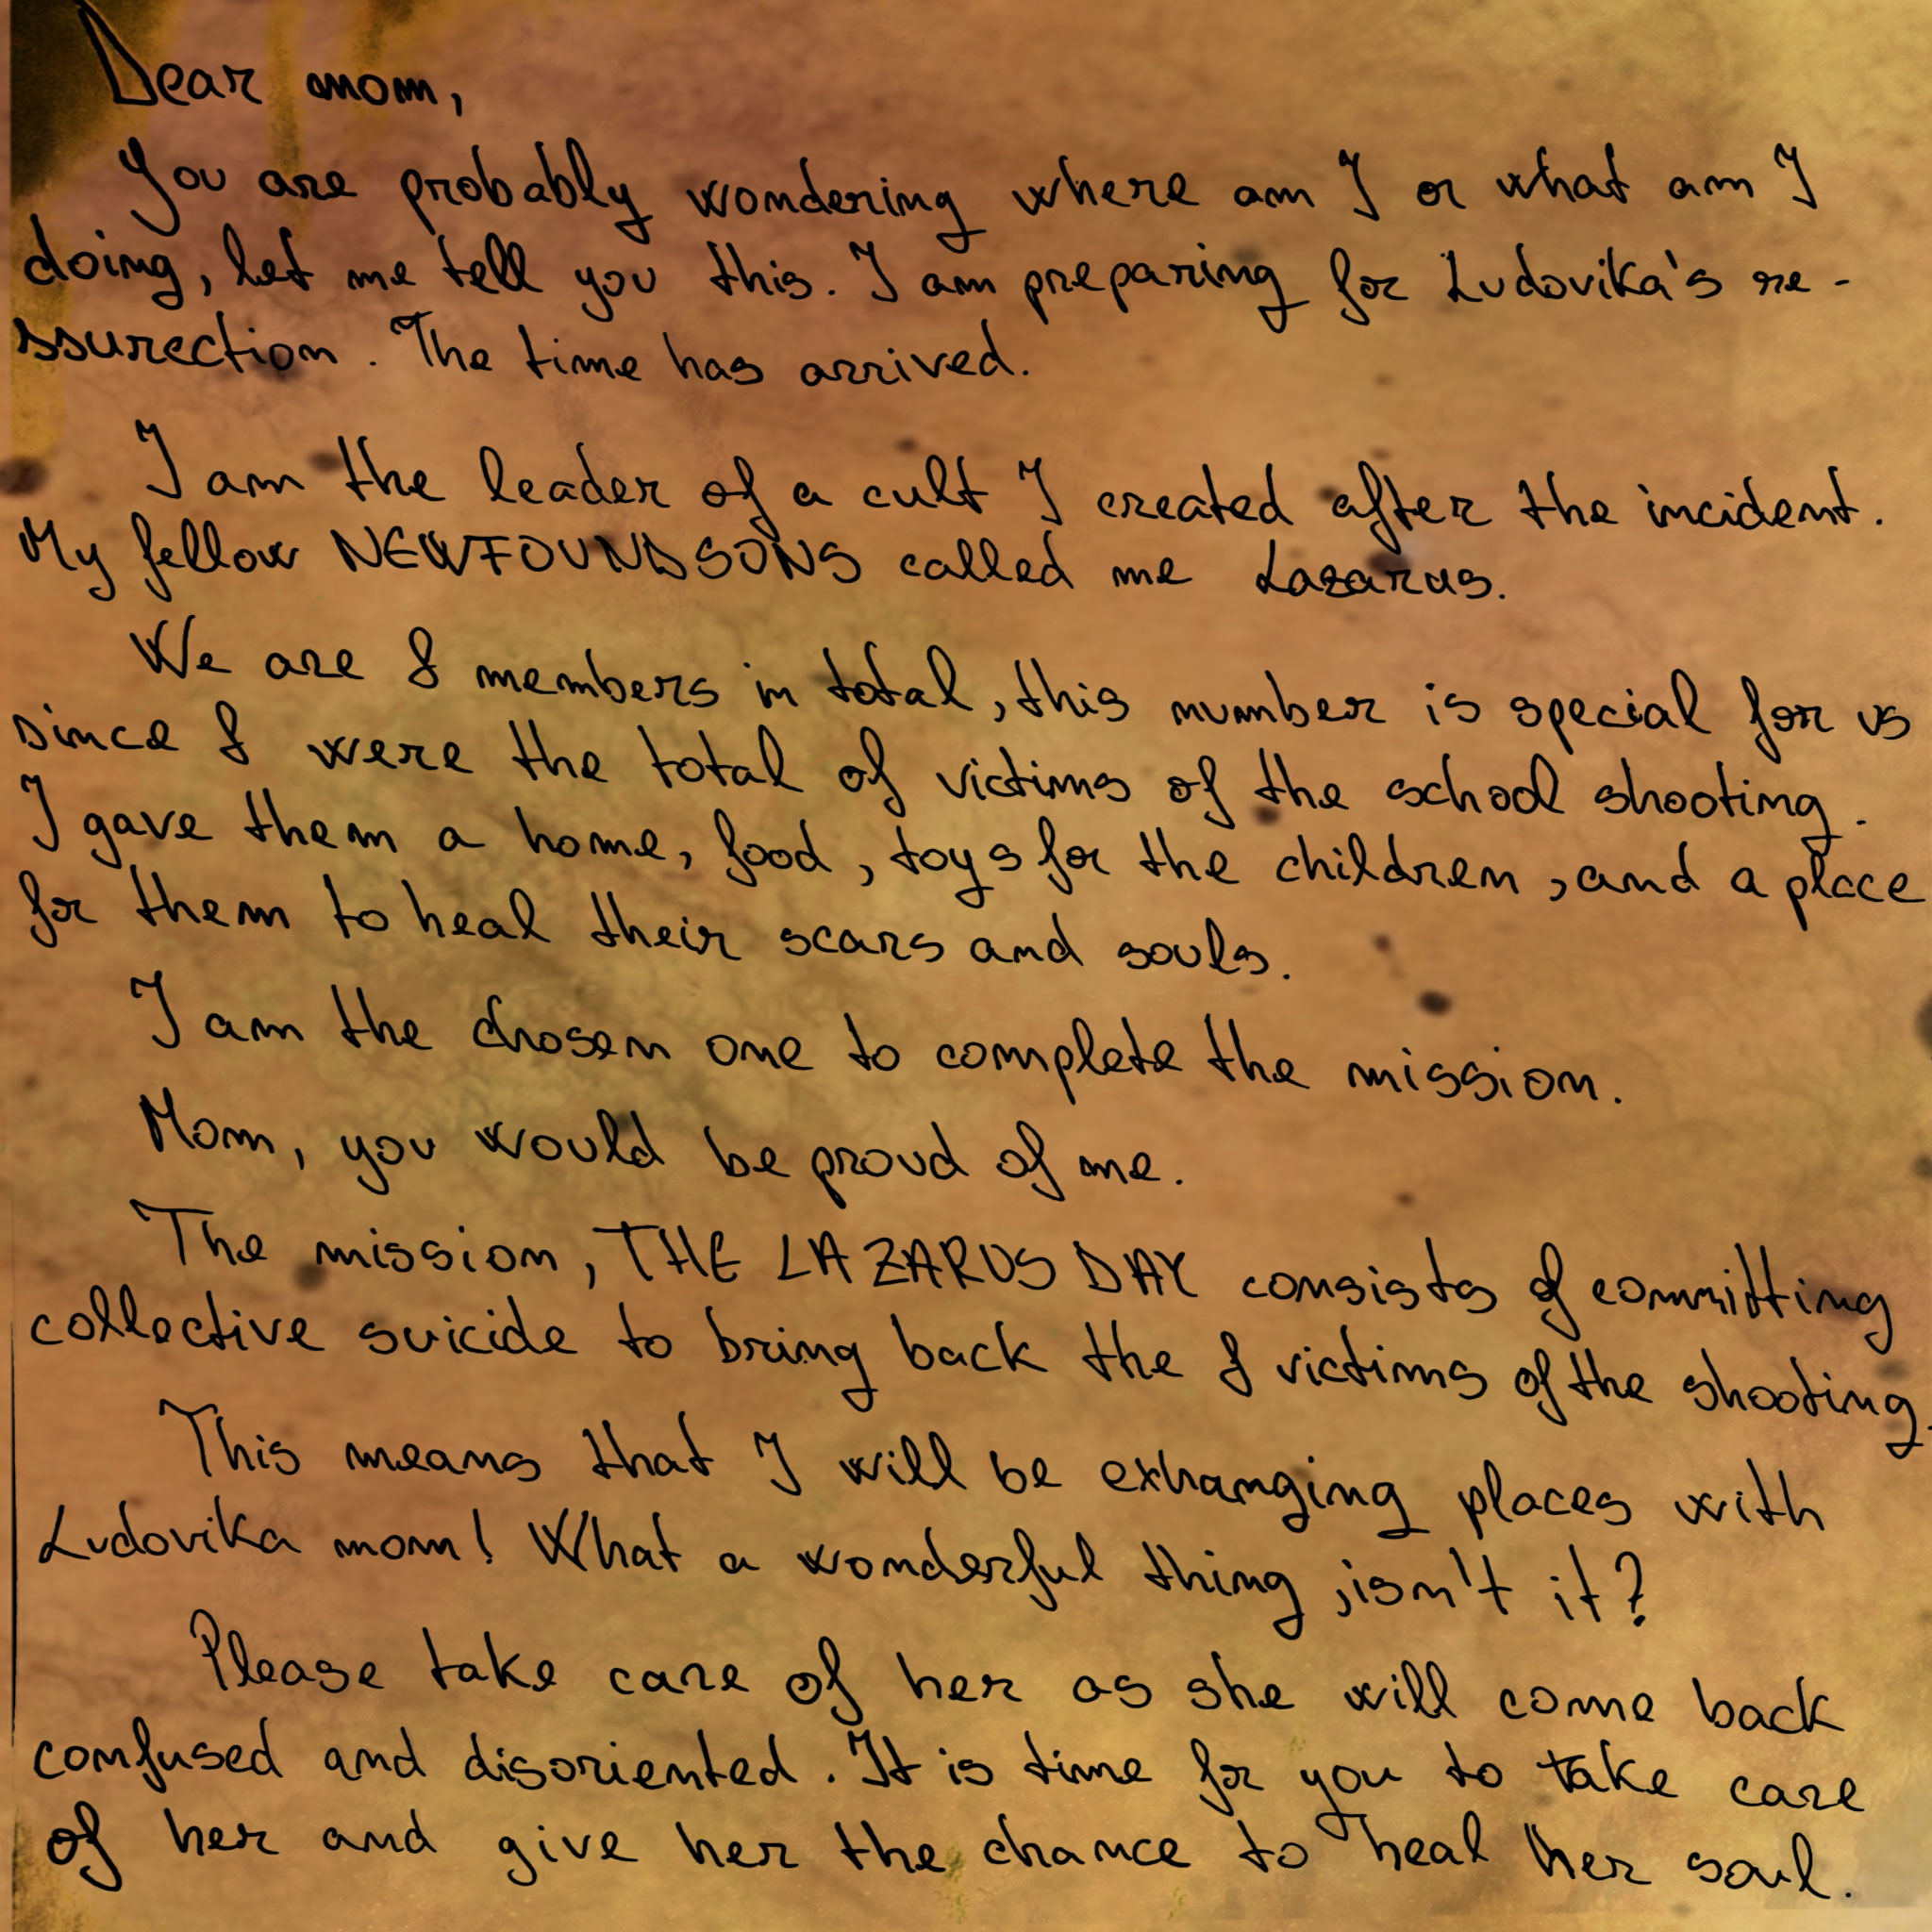 Dear mom,
You are probably wondering where am I or what am I
doing, let me tell you this. I am preparing for Ludovika's re-
ssurection. The time has arrived.
I am the leader of a cult I created after the incident.
My fellow NEWFOUNDSONS called me Lazarus.
We are 8 members in total, this number is special for us
since 8 were the total of victims of the school shooting.
I gave them a home, food, toys for the children, and a place
for them to heal their scars and souls.
I am the chosen one to complete the mission.
Mom, you would be proud of me.
The mission, THE LAZARUS DAY consists of committing
collective suicide to bring back the 8 victims of the shooting.
This means that I will be exhanging places with
Ludovika mom! What a wonderful thing, isn't it?
Please take care of her as she will come back
confused and disoriented. It is time for you to take care
of her and give her the chance to heal her soul.